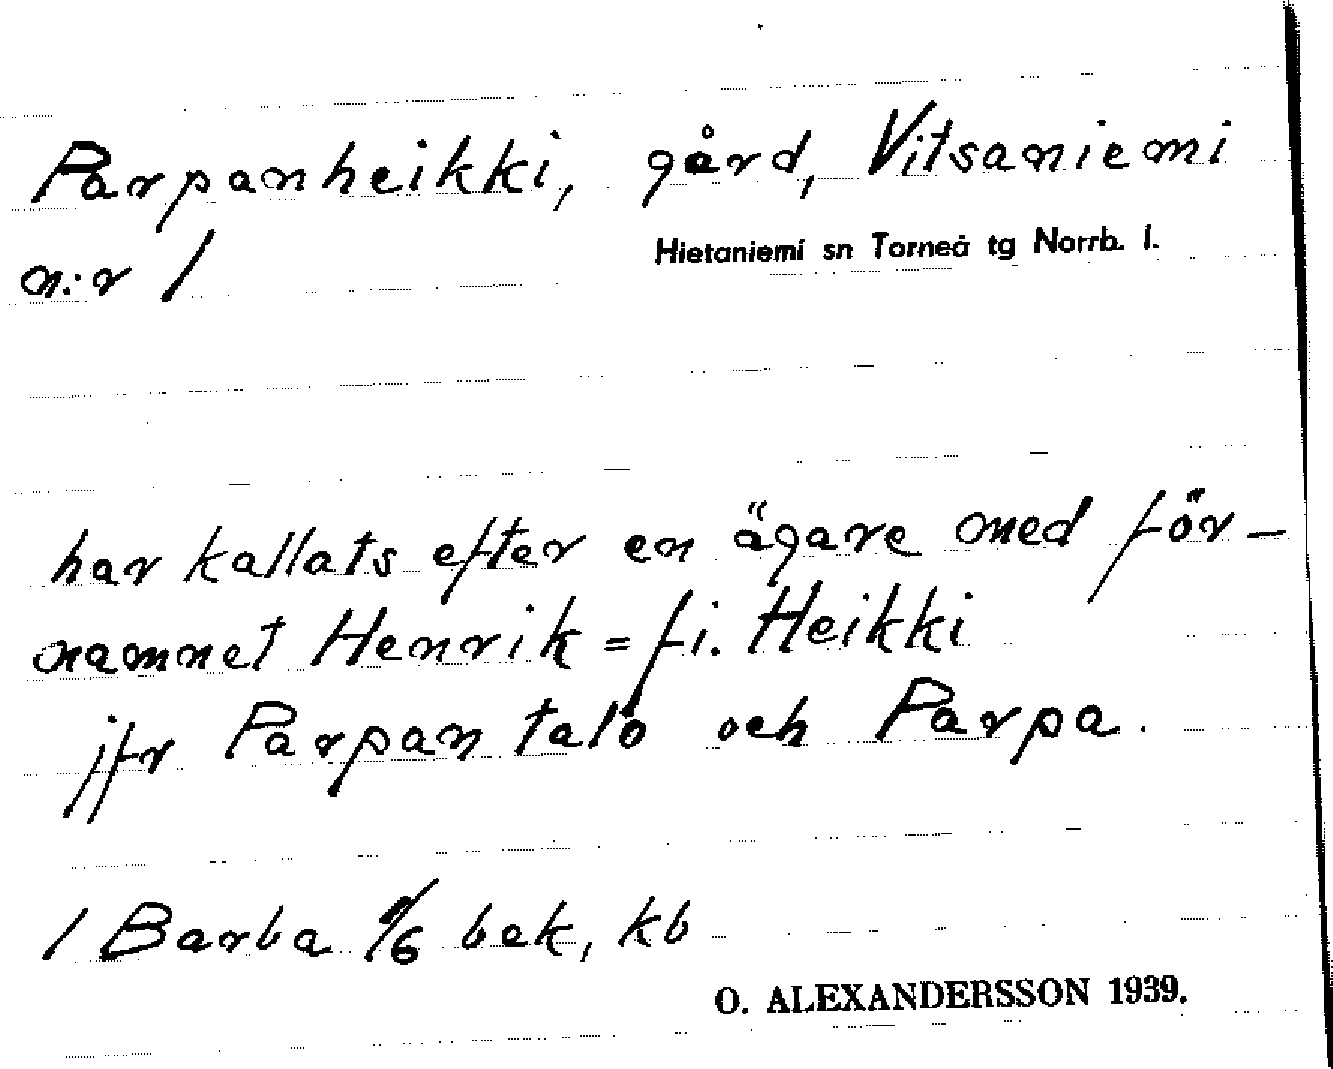 Parpanheikki, gård, Vitsaniemi
n:r 1
Hietaniemi sn Torneå tg Norrb. l.
har kallats efter en ägare med för-
namnet Henrik = fi. Heikki
jfr Parpan talo och Parpa.
1 Barba bek, kb
O. ALEXANDERSSON 1939.